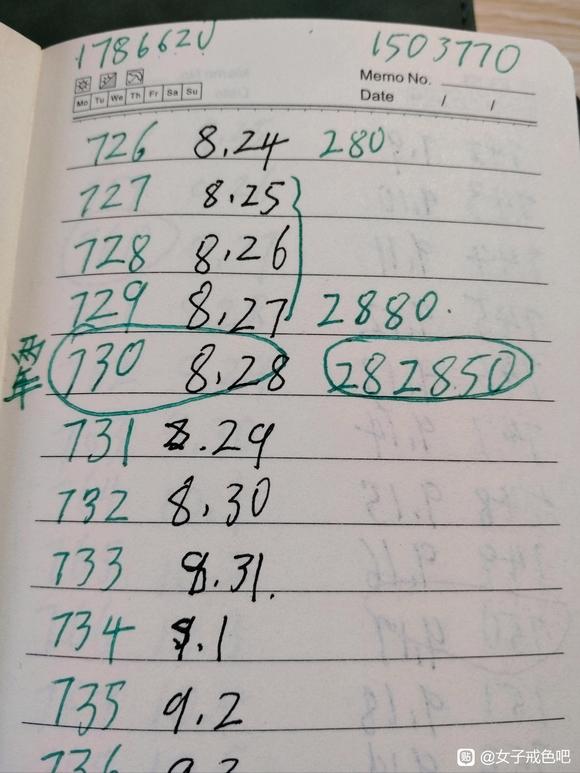 1786620 1503770
Memo No.
Mo Tu We Th Fr Sa Su Date / /
726 8.24 280
727 8.25
728 8.26
729 8.27 2880.
两年 730 8.28 282850
731 8.29
732 8.30
733 8.31.
734 9.1
735 9.2
736 9.3
贴 @女子戒色吧